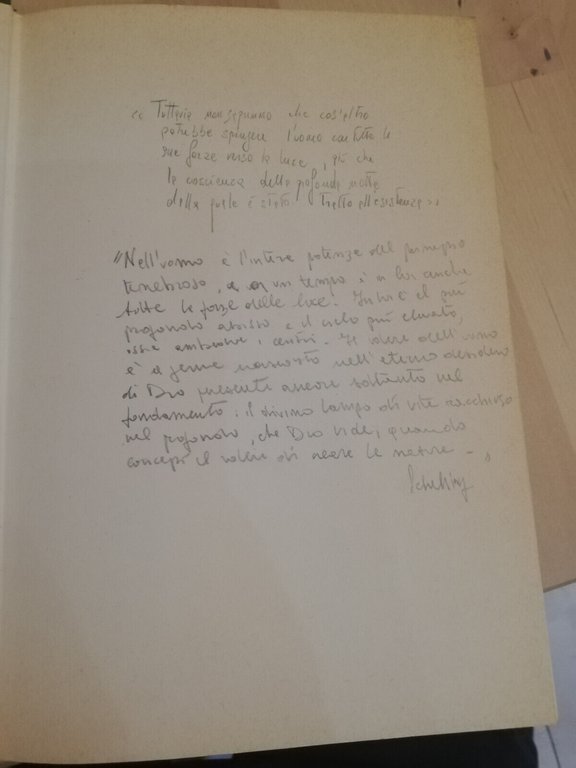 << Tuttavia non sappiamo che cos'altro
potrebbe spingere l'uomo con tutte le
sue forze verso la luce, più che
la coscienza della profonda notte
dalla quale è stato tratto all'esistenza >>
"Nell'uomo è l'intera potenza del principio
tenebroso, e a un tempo, è in lui anche
tutte la forza della luce. In lui è il più
profondo abisso e il cielo più elevato,
ossia ambedue i centri. Il volere dell'uomo
è il germe nascosto nell'eterno desiderio
di Dio presente ancora soltanto nel
fondamento: il divino lampo di vita racchiuso
nel profondo, che Dio vide, quando
concepì il volere di creare la natura -"
Schelling